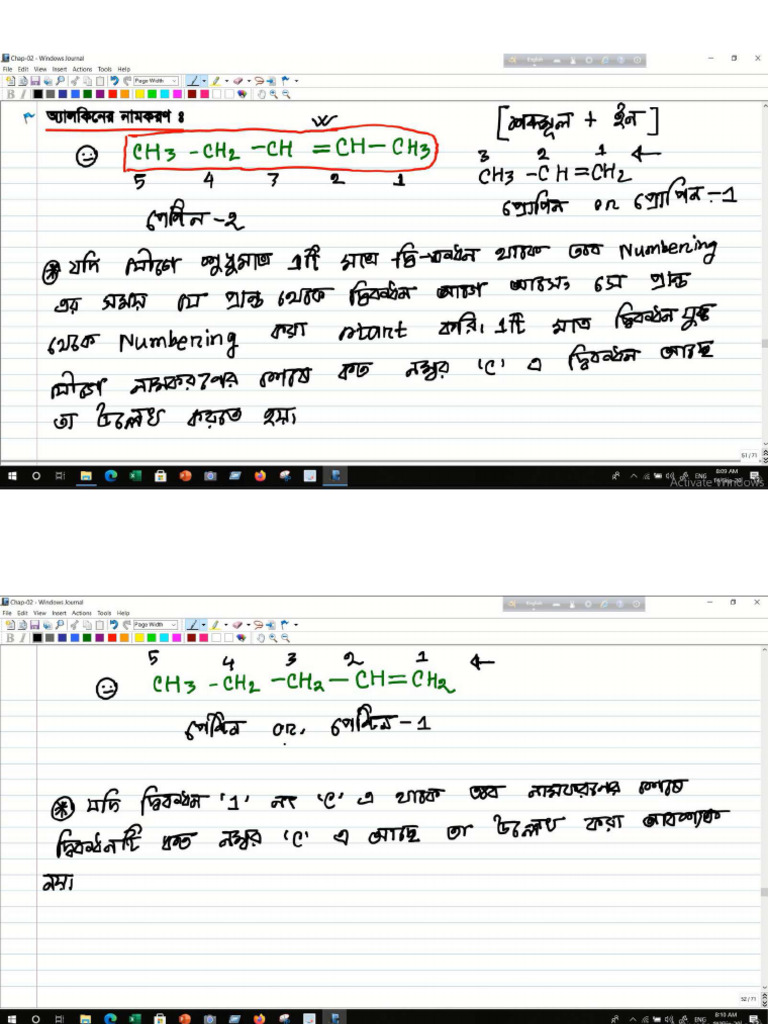 Chap-02 - Windows Journal
File Edit View Insert Actions Tools Help
Page Width
অ্যালকিনের নামকরণ ঃ
[শব্দমূল + ইন]
CH3 - CH2 - CH = CH - CH3
5 4 3 2 1
3 2 1 ←
CH3 - CH = CH2
প্রোপিন or প্রোপিন-1
পেন্টিন-2
* যদি যৌগে শুধুমাত্র 1টি মাত্র দ্বি-বন্ধন থাকে তবে Numbering
এর সময় যে প্রান্ত থেকে দ্বিবন্ধন আগে আসে, সে প্রান্ত
থেকে Numbering করা start করি। 1টি মাত্র দ্বিবন্ধন যুক্ত
যৌগে নামকরণের শেষে কত নম্বর 'C' এ দ্বিবন্ধন আছে
তা উল্লেখ করতে হয়।
51 / 71
ENG
8:09 AM
Activate Windows
Chap-02 - Windows Journal
File Edit View Insert Actions Tools Help
Page Width
5 4 3 2 1 ←
CH3 - CH2 - CH2 - CH = CH2
পেন্টিন or, পেন্টিন-1
* যদি দ্বিবন্ধন '1' নং 'C' এ থাকে তবে নামকরণের শেষে
দ্বিবন্ধনটি কত নম্বর 'C' এ আছে তা উল্লেখ করা আবশ্যক
নয়।
52 / 71
ENG
8:18 AM